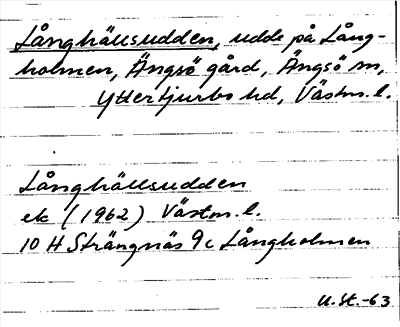 Långhällsudden, udde på Lång-
holmen, Ängsö gård, Ängsö sn,
Yttertjurbo hd, Västm. l.
Långhällsudden
ek (1962) Västm. l.
10 H Strängnäs 9c Långholmen
U.St.-63